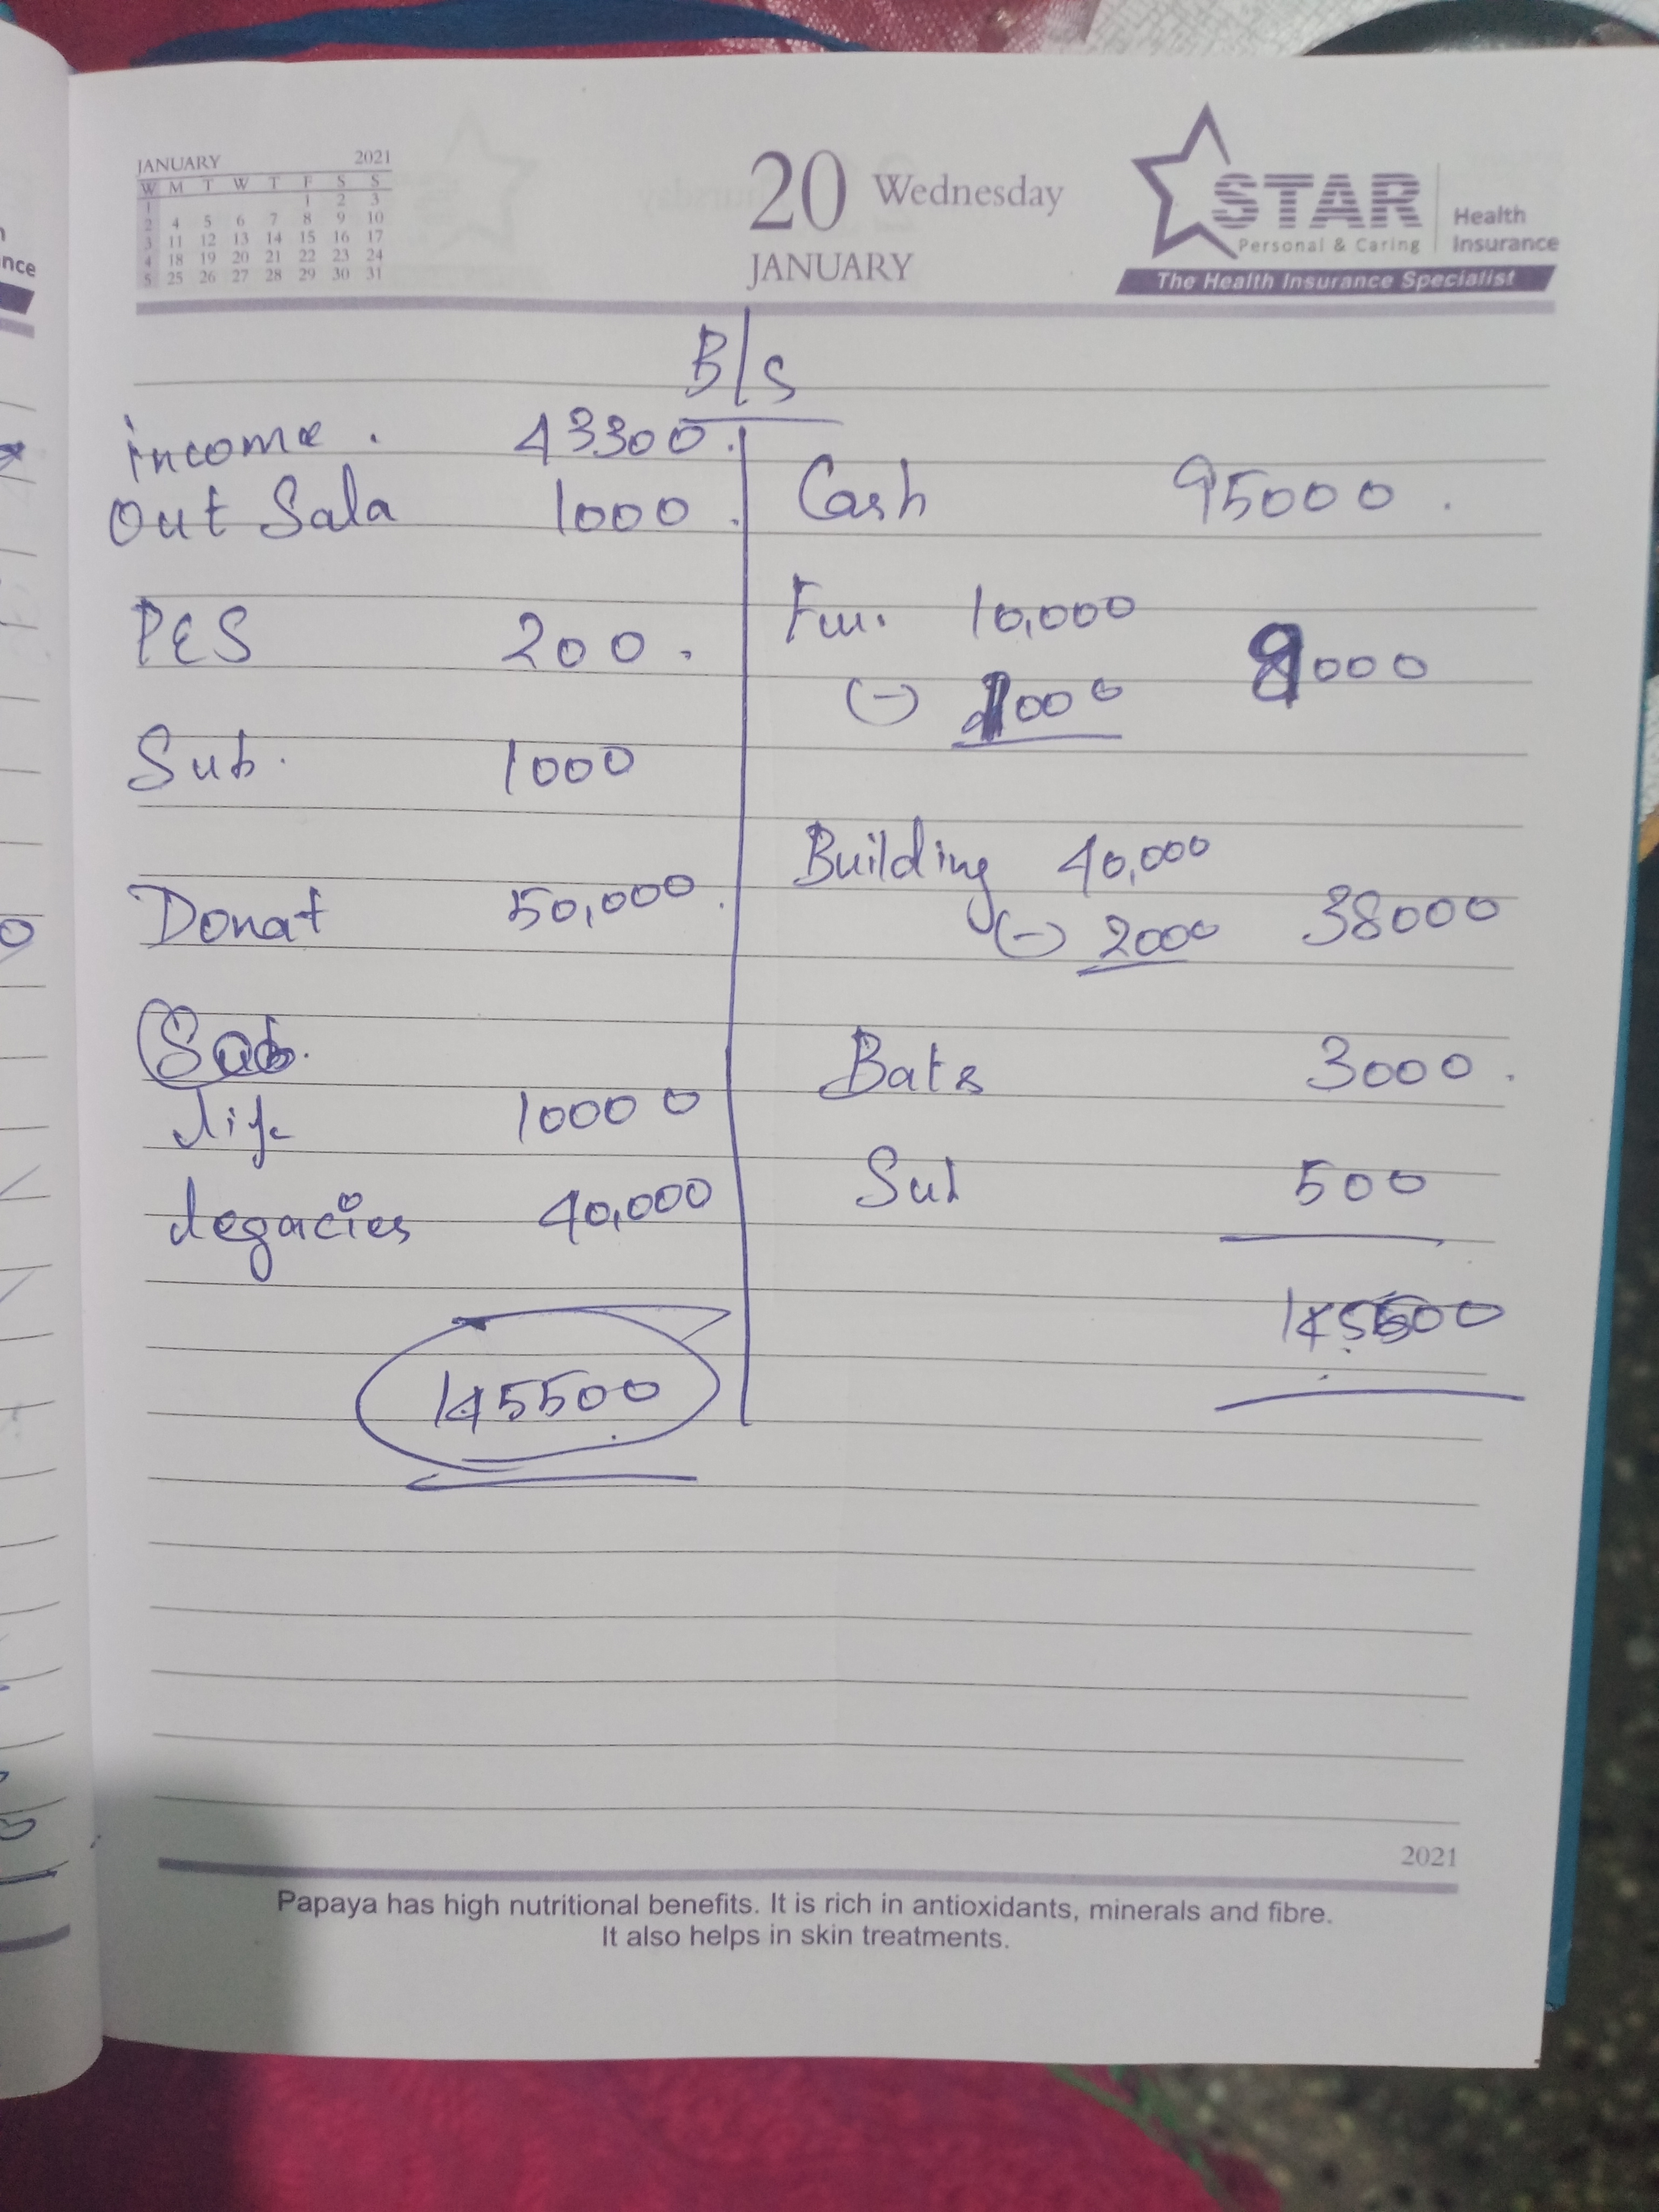 JANUARY 2021
W M T W T F S S
1 1 2 3
2 4 5 6 7 8 9 10
3 11 12 13 14 15 16 17
4 18 19 20 21 22 23 24
5 25 26 27 28 29 30 31
20 Wednesday
JANUARY
STAR Health
Personal & Caring Insurance
The Health Insurance Specialist
nce
B/S
income. 43300.
Out Sala 1000.
PES 200.
Sub. 1000
Donat 50,000.
Sub.
life 10000
legacies 40,000
145500
Cash 95000.
Fur. 10,000
(-) 1000 9000
Building 40,000
(-) 2000 38000
Bats 3000.
Sub 500
145500
2021
Papaya has high nutritional benefits. It is rich in antioxidants, minerals and fibre.
It also helps in skin treatments.